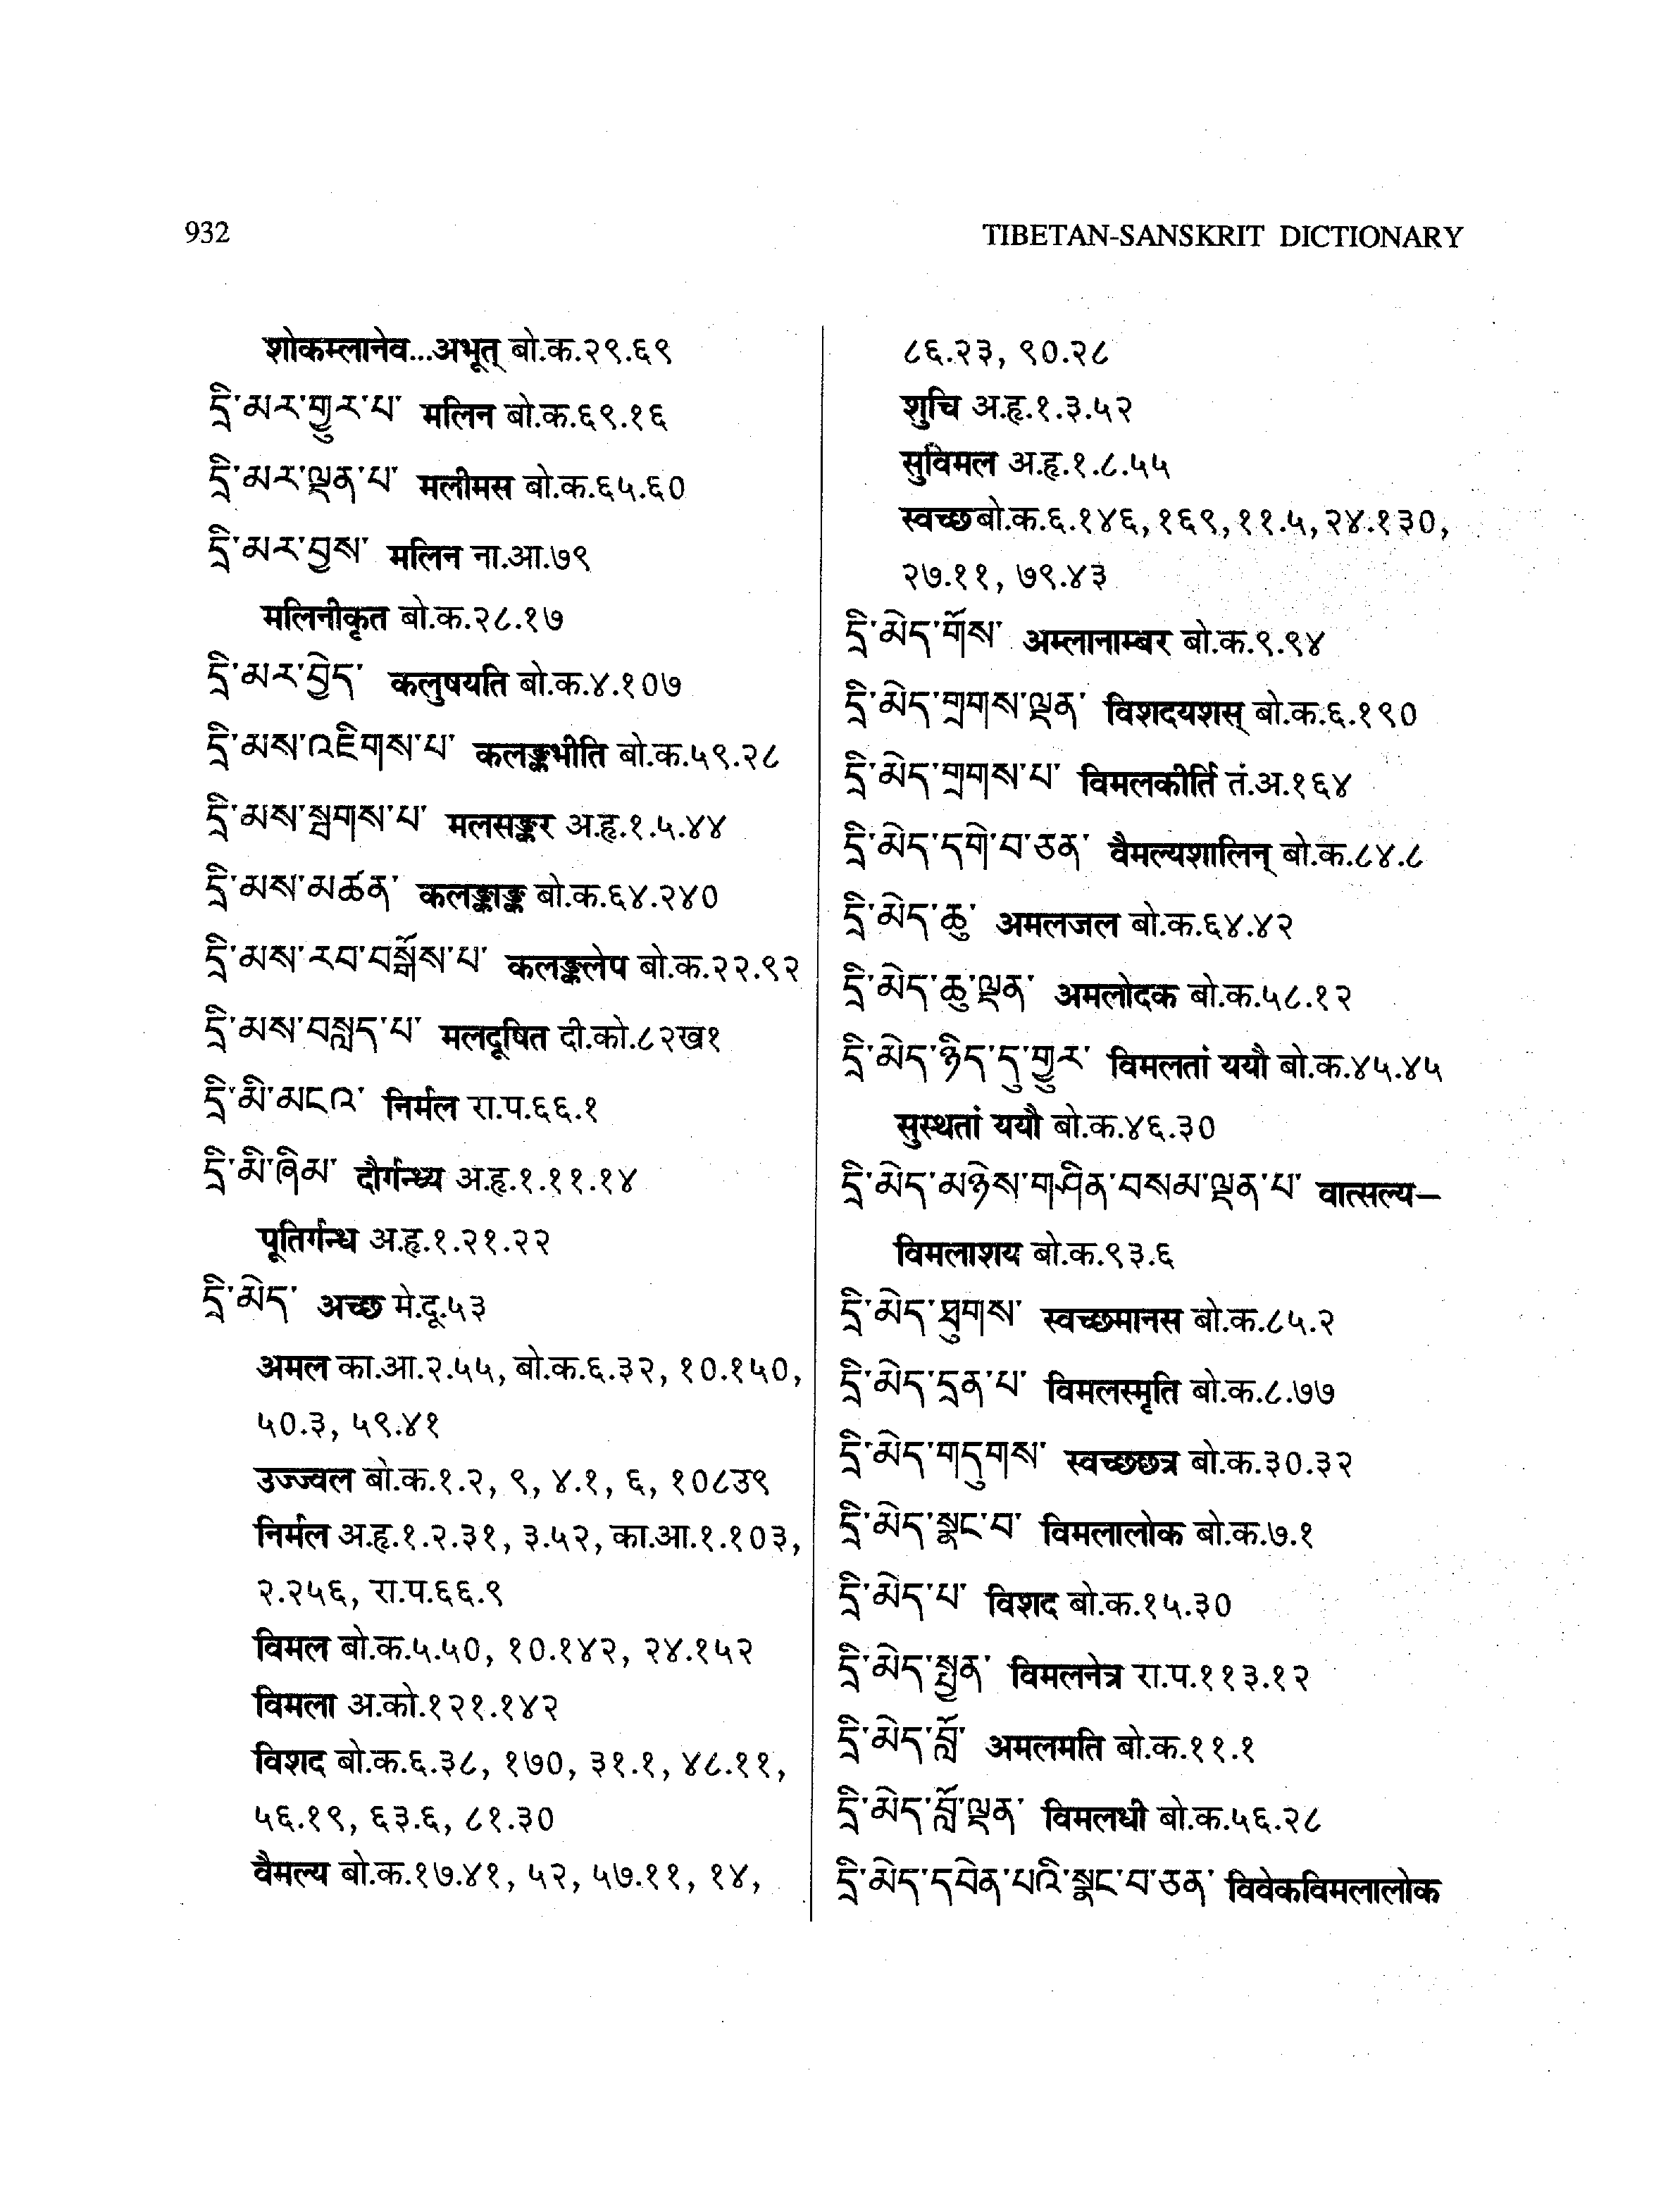 932
TIBETAN-SANSKRIT DICTIONARY
शोकम्लानेव...अभूत् बो.क.२९.६९
དྲི་མར་གྱུར་པ་ मलिन बो.क.६९.१६
དྲི་མར་ལྡན་པ་ मलीमस बो.क.६५.६०
དྲི་མར་བྱས་ मलिन ना.आ.७९
मलिनीकृत बो.क.२८.१७
དྲི་མར་བྱེད་ कलुषयति बो.क.४.१०७
དྲི་མས་འཇིགས་པ་ कलङ्कभीति बो.क.५९.२८
དྲི་མས་སྦགས་པ་ मलसङ्कर अ.हृ.१.५.४४
དྲི་མས་མཚན་ कलङ्काङ्क बो.क.६४.२४०
དྲི་མས་རབ་བསྒོས་པ་ कलङ्कलेप बो.क.२२.९२
དྲི་མས་བསླད་པ་ मलदूषित दी.को.८२ख१
དྲི་མི་མངའ་ निर्मल रा.प.६६.१
དྲི་མི་ཞིམ་ दौर्गन्ध्य अ.हृ.१.११.१४
पूतिर्गन्ध अ.हृ.१.२१.२२
དྲི་མེད་ अच्छ मे.दू.५३
अमल का.आ.२.५५, बो.क.६.३२, १०.१५०,
५०.३, ५९.४१
उज्ज्वल बो.क.१.२, ९, ४.१, ६, १०८उ९
निर्मल अ.हृ.१.२.३१, ३.५२, का.आ.१.१०३,
२.२५६, रा.प.६६.९
विमल बो.क.५.५०, १०.१४२, २४.१५२
विमला अ.को.१२१.१४२
विशद बो.क.६.३८, १७०, ३१.१, ४८.११,
५६.१९, ६३.६, ८१.३०
वैमल्य बो.क.१७.४१, ५२, ५७.११, १४,
८६.२३, ९०.२८
शुचि अ.हृ.१.३.५२
सुविमल अ.हृ.१.८.५५
स्वच्छ बो.क.६.१४६, १६९, ११.५, २४.१३०,
२७.११, ७९.४३
དྲི་མེད་གོས་ अम्लानाम्बर बो.क.९.९४
དྲི་མེད་གྲགས་ལྡན་ विशदयशस् बो.क.६.१९०
དྲི་མེད་གྲགས་པ་ विमलकीर्ति तं.अ.१६४
དྲི་མེད་དགེ་བ་ཅན་ वैमल्यशालिन् बो.क.८४.८
དྲི་མེད་ཆུ་ अमलजल बो.क.६४.४२
དྲི་མེད་ཆུ་ལྡན་ अमलोदक बो.क.५८.१२
དྲི་མེད་ཉིད་དུ་གྱུར་ विमलतां ययौ बो.क.४५.४५
सुस्थतां ययौ बो.क.४६.३०
དྲི་མེད་མཉེས་གཤིན་བསམ་ལྡན་པ་ वात्सल्य–
विमलाशय बो.क.९३.६
དྲི་མེད་ཐུགས་ स्वच्छमानस बो.क.८५.२
དྲི་མེད་དྲན་པ་ विमलस्मृति बो.क.८.७७
དྲི་མེད་གདུགས་ स्वच्छछत्र बो.क.३०.३२
དྲི་མེད་སྣང་བ་ विमलालोक बो.क.७.१
དྲི་མེད་པ་ विशद बो.क.१५.३०
དྲི་མེད་སྤྱན་ विमलनेत्र रा.प.११३.१२
དྲི་མེད་བློ་ अमलमति बो.क.११.१
དྲི་མེད་བློ་ལྡན་ विमलधी बो.क.५६.२८
དྲི་མེད་དབེན་པའི་སྣང་བ་ཅན་ विवेकविमलालोक